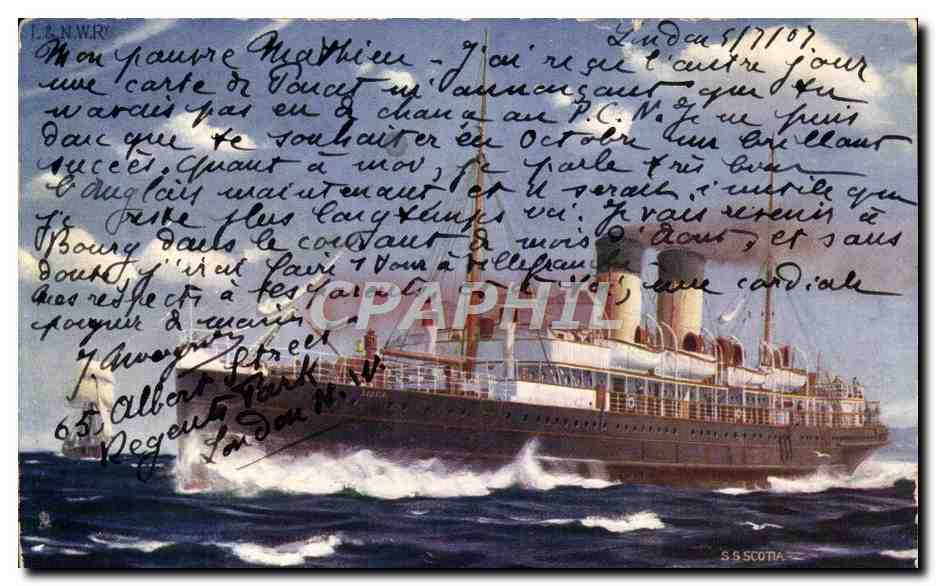 L. & N.W. Ry
London 5/7/07
Mon pauvre Mathieu - J'ai reçu l'autre jour
une carte de m'annonçant que tu
n'avais pas eu de chance au P.C.N. Je ne puis
donc que te souhaiter en Octobre un brillant
succès. Quant à moi, je parle très bien
l'Anglais maintenant et il serait inutile que
je reste plus longtemps ici. Je vais revenir à
Bourg dans le courant du mois d'Aout, et sans
doute j'irai faire 1 tour à Villefranche
Mes respects à tes parents et à toi, une cordiale
poignée de mains
J.
65, Albert Street
Regents Park
London N.W.
CPAPHIL
SCOTIA
S S SCOTIA